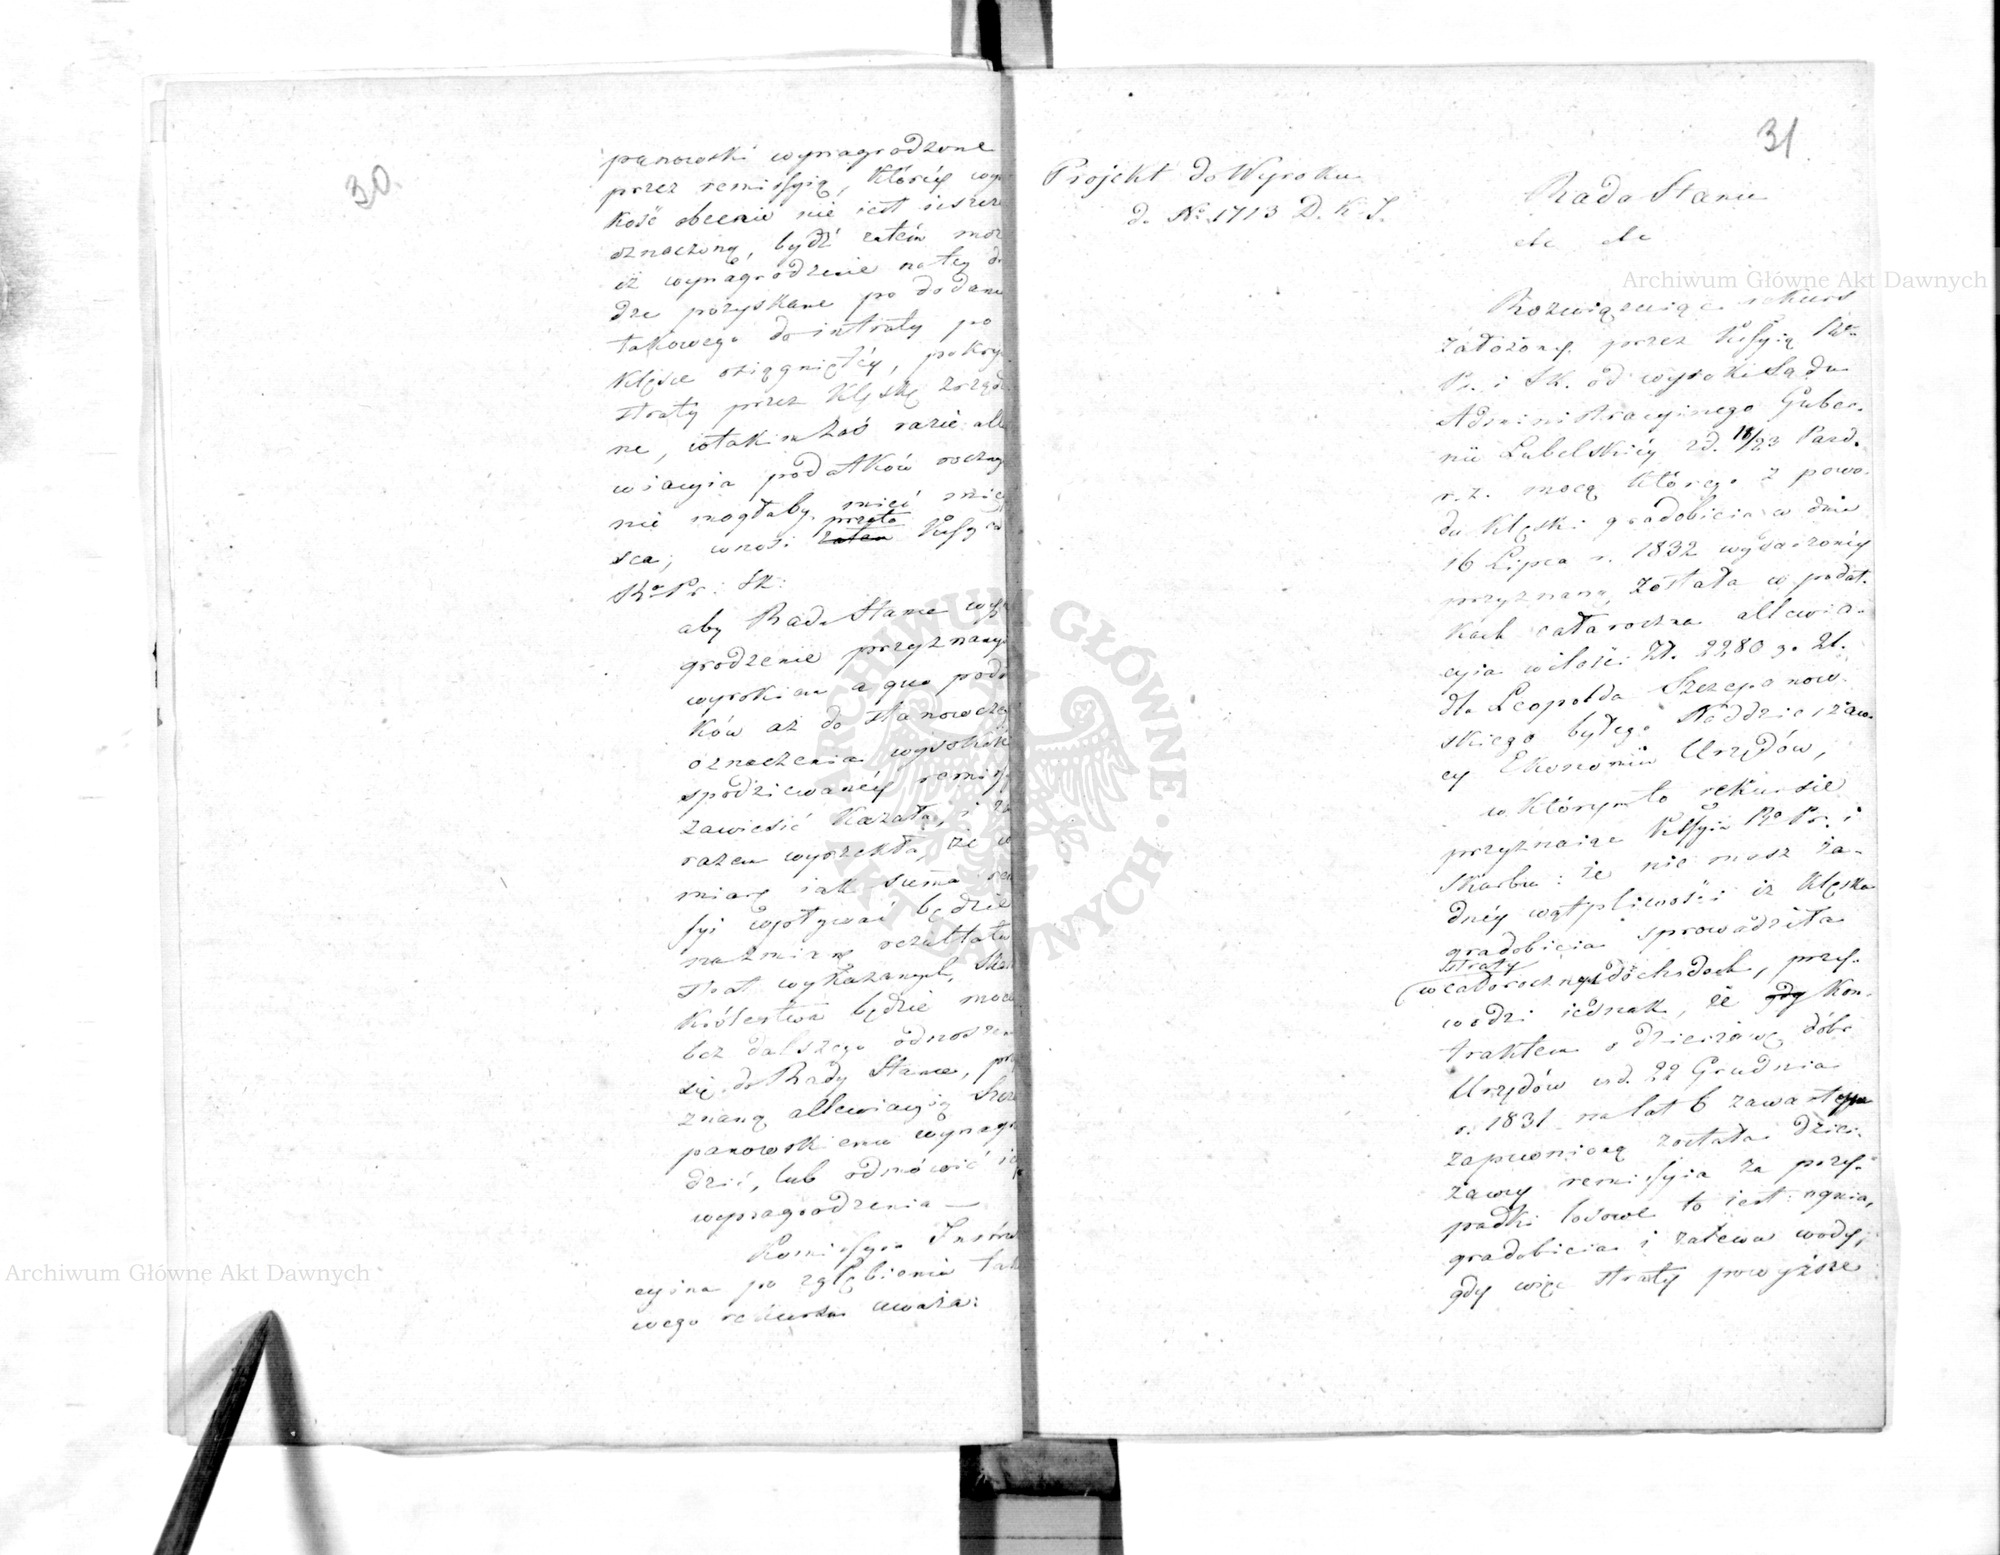 30.
panowski wynagrodzone
przez remissyią, któréy wyso
kość obecnie nie iest ieszcze
oznaczoną, bydź zatém moż
iż wynagrodzenie
dze pozyskane po dodaniu
takowego do intraty po
klęsce osiągniętéy, pokry
straty przez klęskę zrządz
ne, w takim zaś razie alle
wiacyia podatków roczny
nie mogłaby mieć miey
sca, wnosi zatem przeto Kssya
Rz. Pr: Sk:
aby Rada Stanu wy
grodzenie przyznany
wyrokiem a quo poda
ków aż do stanowczego
oznaczenia wysokości
spodziewanéy remiss
zawiesić kazała, i za
razem wyrzekła, że w
miarę iak suma re
syi wpływać będzie
na zmianę rezultatu
strat wykazanych, Skar
Królestwa będzie mocen
bez dalszego odnoszen
się do Rady Stanu, przy
znaną allewiacyią Szcze
panowskiemu wynagro
dzić, lub odmówić ie
wynagrodzenia —
Komissyia Instru
cyina po zgłębieniu tak
wego rekursu uważa:
31
Projekt do Wyroku
d. No 1713 D. K. J.
Rada Stanu
etc etc
Rozwiązuiąc rekurs
założony przez Kssyią Rz.
Pr. i Sk. od wyroku Sądu
Administracyinego Guber-
nii Lubelskiéy z d. 11/23 Paźd.
r. z. mocą którego z powo-
du klęski gradobicia w dniu
16 Lipca r. 1832 wydarzonéy
przyznaną została w podat-
kach całoroczna allewia-
cyia w ilości Zł. 2280 g. 21.
dla Leopolda Szczepanow-
skiego byłego Naddzierżaw-
cy Ekonomii Urzędów,
w którym to rekursie
przyznaiąc Kssyia Rz. Pr. i
Skarbu: że nie masz ża-
dnéy wątpliwości iż klęska
gradobicia sprowadziła
straty
w całorocznych dochodach, przy-
wodzi iednak, że gdy kon-
traktem o dzierżawę dóbr
Urzędów w d. 22 Grudnia
r. 1831 na lat 6 zawartym
zapewnioną została dzier-
żawcy remissyia za przy-
padki losowe to iest: ognia,
gradobicia i zalewu wody;
gdy więc straty powyższe
Archiwum Główne Akt Dawnych
Archiwum Główne Akt Dawnych
ARCHIWUM GŁÓWNE AKT DAWNYCH